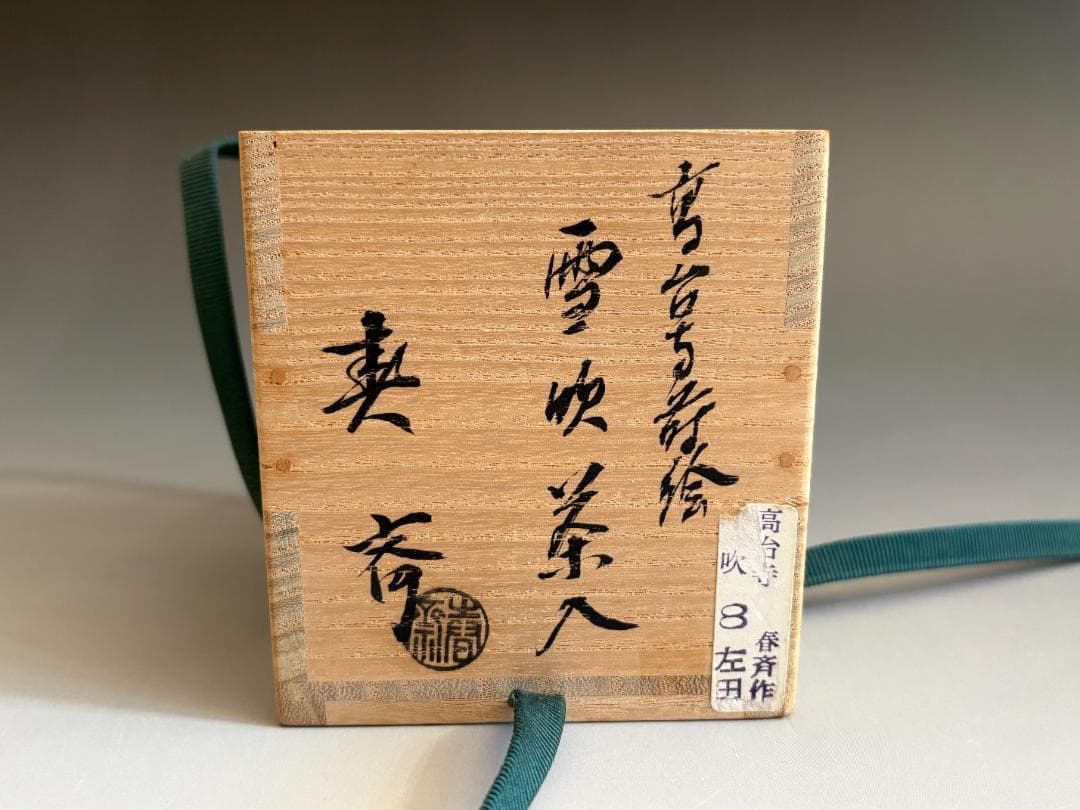 高台寺蒔絵
雪吹茶入
春斎
高台寺 春斉作
吹 8 左田